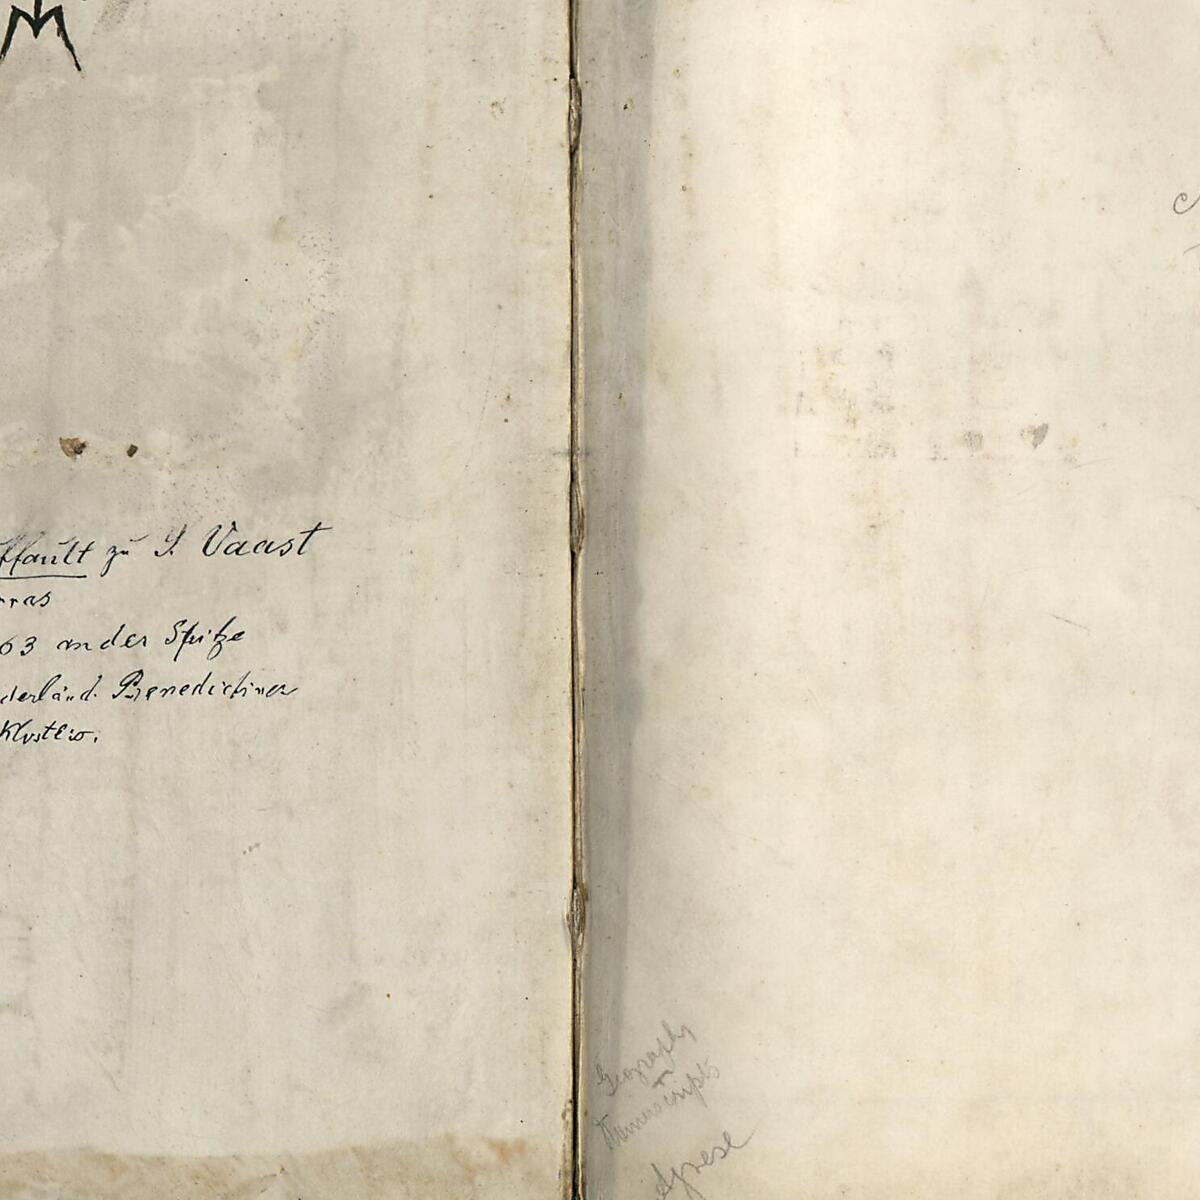 ffault zu S. Vaast
rras
63 an der Spitze
derländ. Benedictiner
Klöster.
Geography
Manuscripts
Agnese